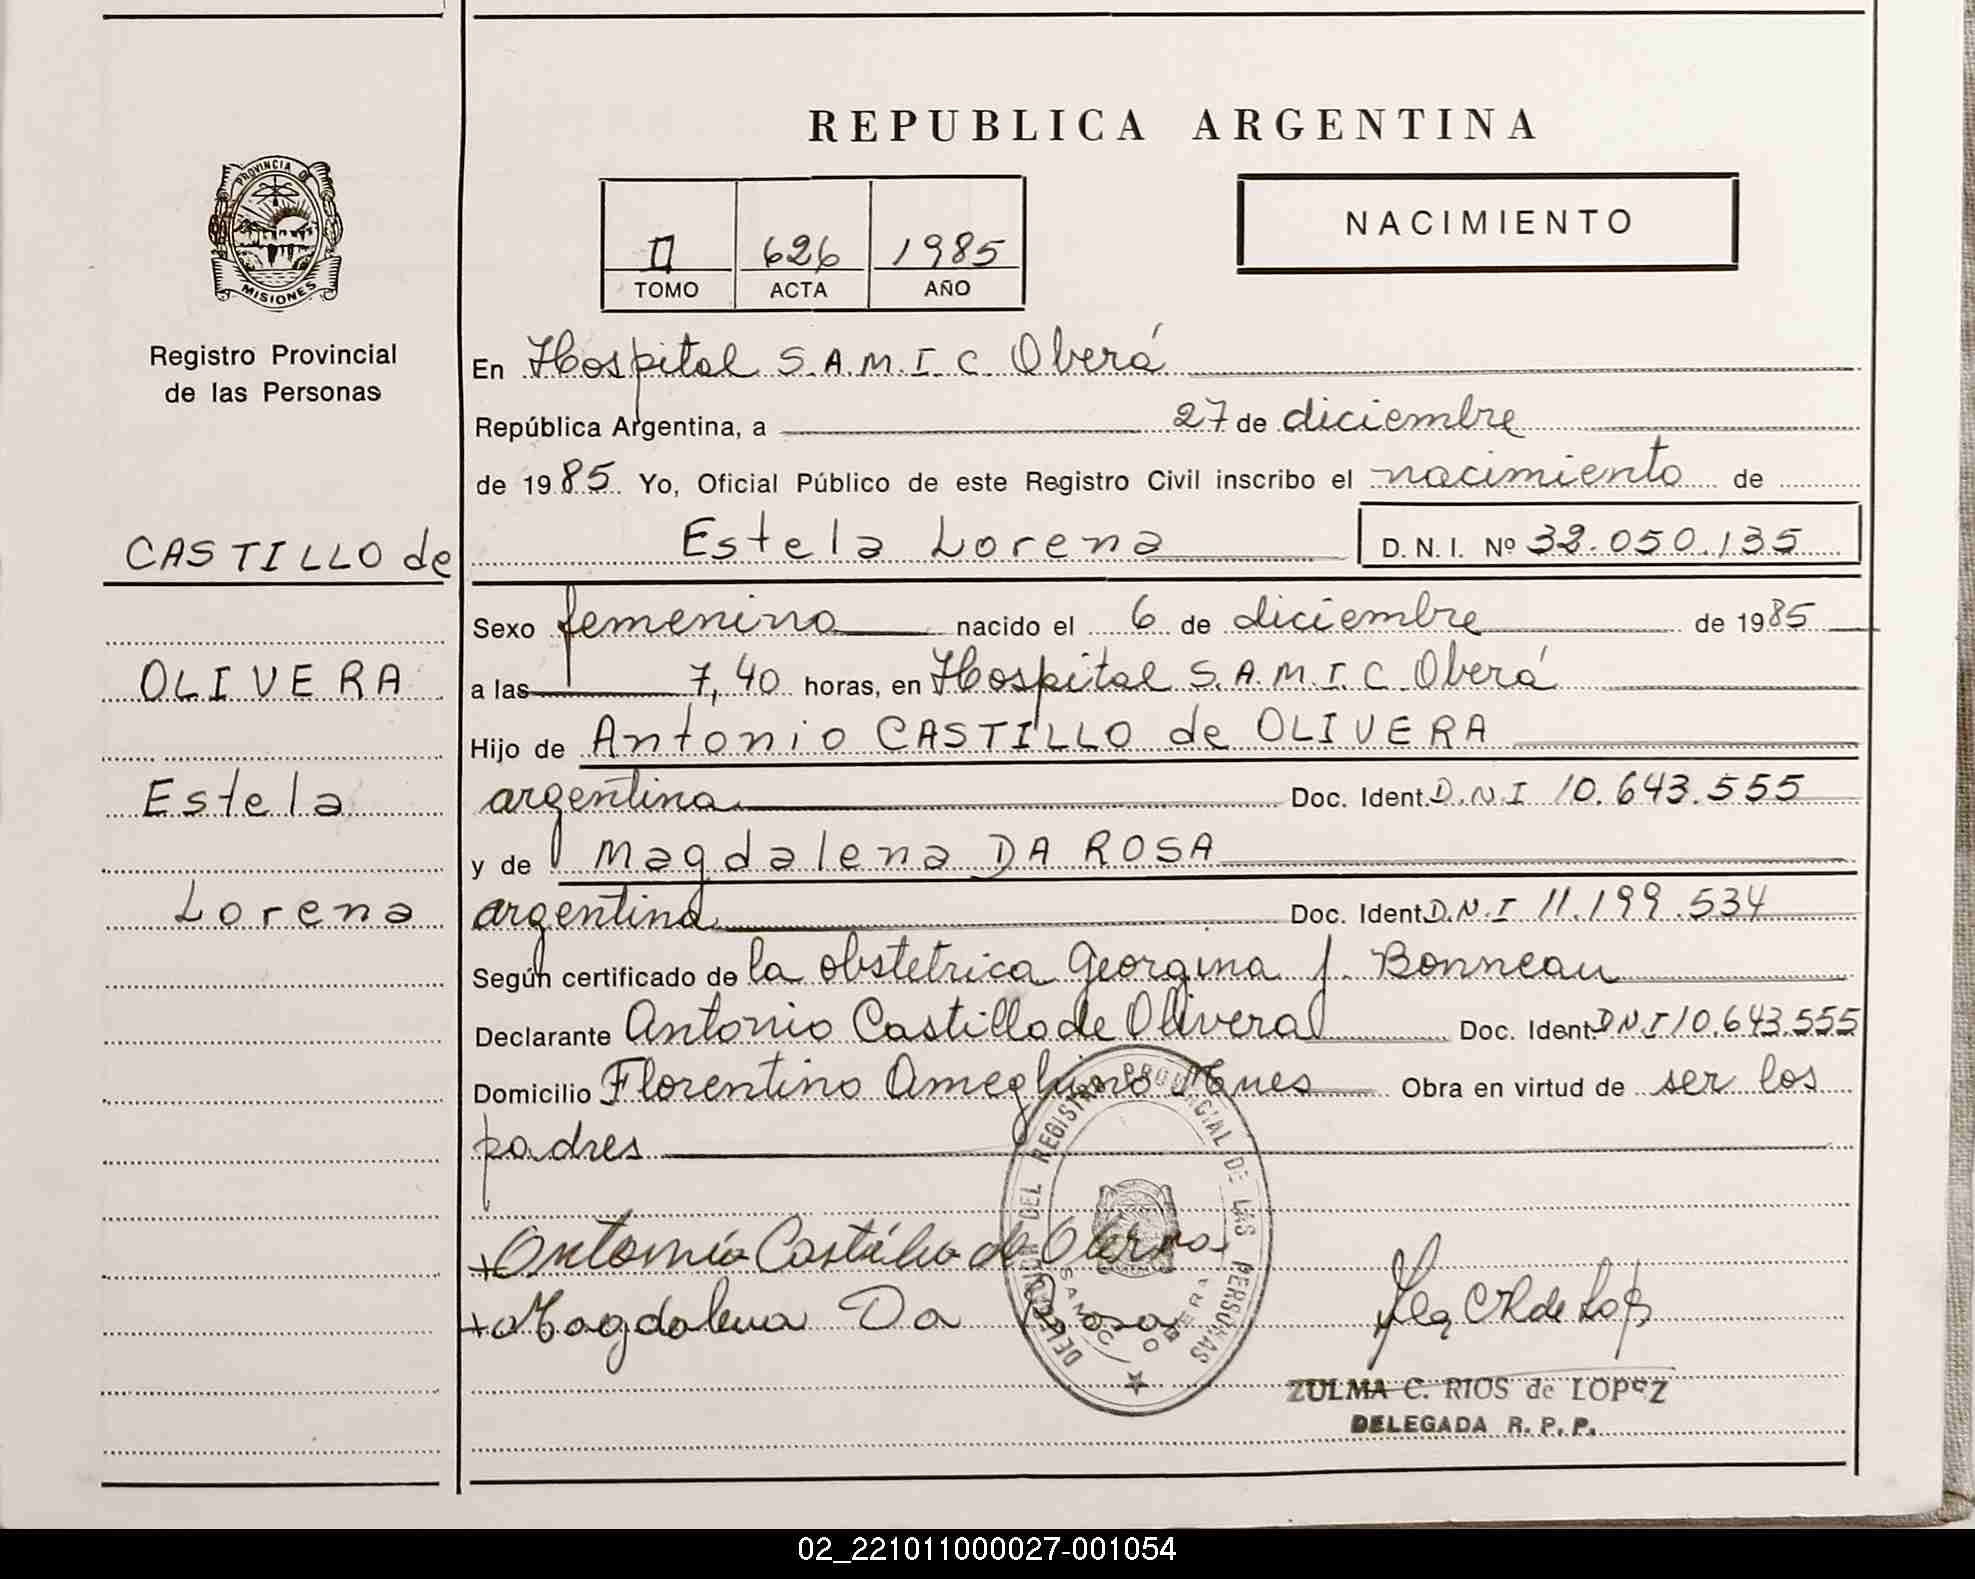 REPUBLICA ARGENTINA
PROVINCIA DE
MISIONES
Registro Provincial
de las Personas
II 626 1985
TOMO ACTA AÑO
NACIMIENTO
En Hospital S.A.M.I.C. Oberá
República Argentina, a 27 de diciembre
de 1985. Yo, Oficial Público de este Registro Civil inscribo el nacimiento de
CASTILLO de
OLIVERA
Estela
Lorena
Estela Lorena D. N. I. Nº 32.050.135
Sexo femenino nacido el 6 de diciembre de 1985
a las 7,40 horas, en Hospital S.A.M.I.C. Oberá
Hijo de Antonio CASTILLO de OLIVERA
argentina Doc. Ident. D.N.I 10.643.555
y de Magdalena DA ROSA
argentina Doc. Ident. D.N.I 11.199.534
Según certificado de la obstetrica Georgina J. Bonneau
Declarante Antonio Castillo de Olivera Doc. Ident. D.N.I 10.643.555
Domicilio Florentino Ameghino Mnes Obra en virtud de ser los
padres
DELEGACION DEL REGISTRO PROVINCIAL DE LAS PERSONAS
SAMIC OBERA
+ Antonio Castillo de Olivera
+ Magdalena Da Rosa
ZULMA C. RIOS de LOPEZ
DELEGADA R. P. P.
02_221011000027-001054